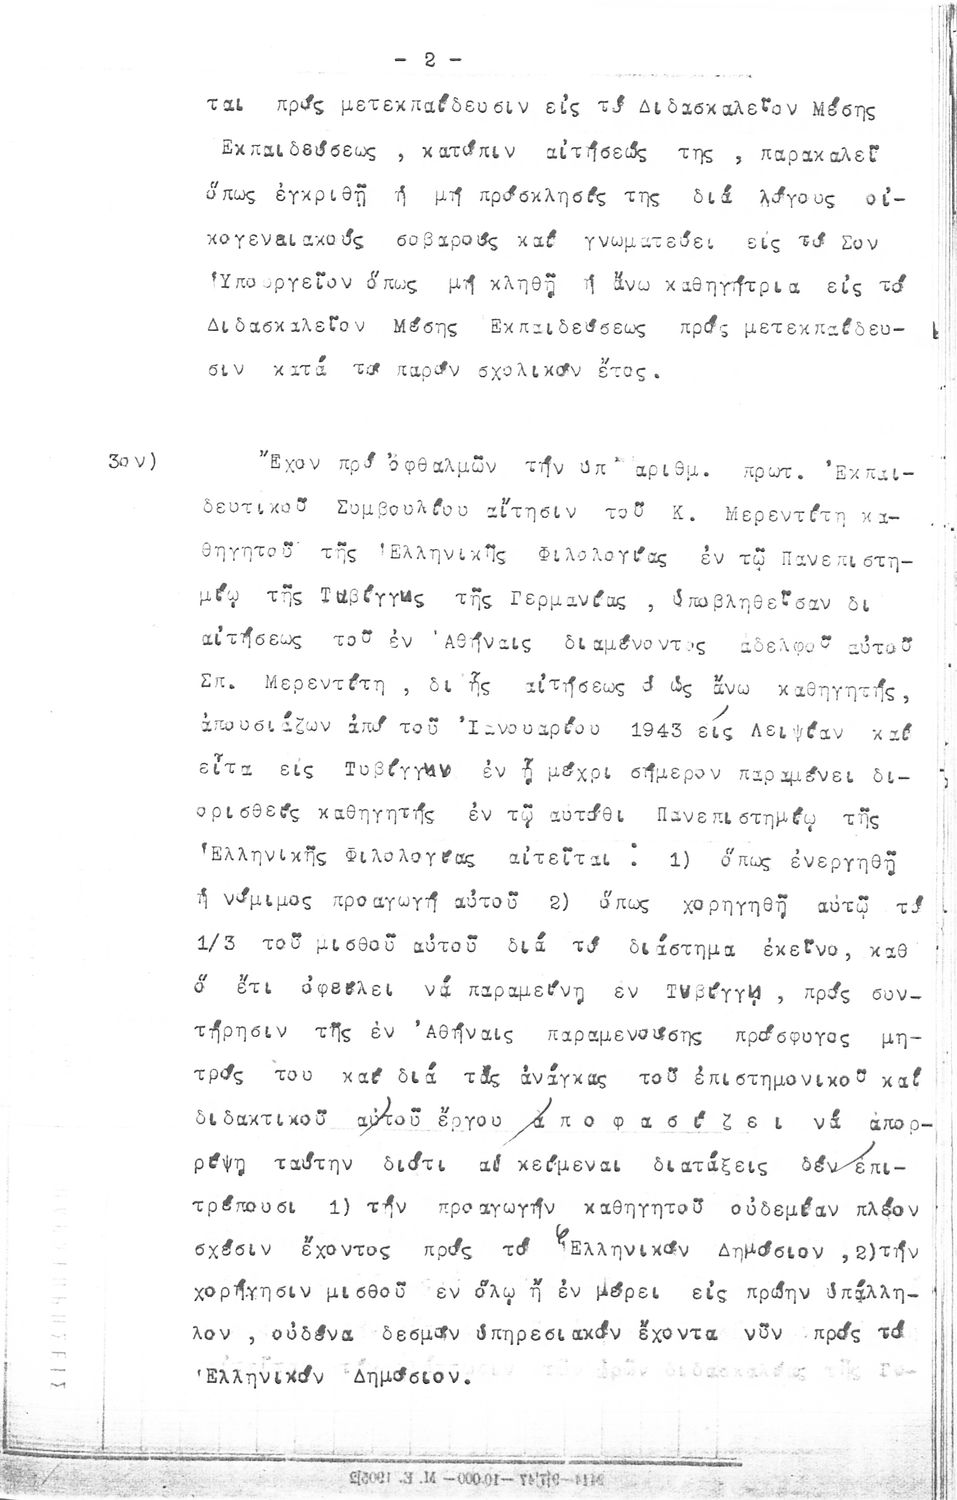 - 2 -
ται πρός μετεκπαίδευσιν εἰς τό Διδασκαλεῖον Μέσης
Ἐκπαιδεύσεως , κατόπιν αἰτήσεώς της , παρακαλεῖ
ὅπως ἐγκριθῇ ἡ μή πρόσκλησίς της διά λόγους οἰ-
κογενειακούς σοβαρούς καί γνωματεύει εἰς τό Σον
Ὑπουργεῖον ὅπως μή κληθῇ ἡ ἄνω καθηγήτρια εἰς τό
Διδασκαλεῖον Μέσης Ἐκπαιδεύσεως πρός μετεκπαίδευ-
σιν κατά τό παρόν σχολικόν ἔτος.
3ον) Ἔχον πρό ὀφθαλμῶν τήν ὑπ' ἀριθμ. πρωτ. Ἐκπαι-
δευτικοῦ Συμβουλίου αἴτησιν τοῦ Κ. Μερεντίτη κα-
θηγητοῦ τῆς Ἑλληνικῆς Φιλολογίας ἐν τῷ Πανεπιστη-
μίῳ τῆς Τυβίγγης τῆς Γερμανίας , ὑποβληθεῖσαν δι
αἰτήσεως τοῦ ἐν Ἀθήναις διαμένοντος ἀδελφοῦ αὐτοῦ
Σπ. Μερεντίτη , δι ἧς αἰτήσεως ὁ ὡς ἄνω καθηγητής,
ἀπουσιάζων ἀπό τοῦ Ἰανουαρίου 1943 εἰς Λειψίαν καί
εἶτα εἰς Τυβίγγην ἐν ᾗ μέχρι σήμερον παραμένει δι-
ορισθείς καθηγητής ἐν τῷ αὐτόθι Πανεπιστημίῳ τῆς
Ἑλληνικῆς Φιλολογίας αἰτεῖται : 1) ὅπως ἐνεργηθῇ
ἡ νόμιμος προαγωγή αὐτοῦ 2) ὅπως χορηγηθῇ αὐτῷ τό
1/3 τοῦ μισθοῦ αὐτοῦ διά τό διάστημα ἐκεῖνο, καθ
ὅ ἔτι ὀφείλει νά παραμείνῃ ἐν Τυβίγγῃ , πρός συν-
τήρησιν τῆς ἐν Ἀθήναις παραμενούσης πρόσφυγος μη-
τρός του καί διά τάς ἀνάγκας τοῦ ἐπιστημονικοῦ καί
διδακτικοῦ αὐτοῦ ἔργου ἀ π ο φ α σ ί ζ ε ι νά ἀπορ-
ρίψῃ ταύτην διότι αἱ κείμεναι διατάξεις δέν ἐπι-
τρέπουσι 1) τήν προαγωγήν καθηγητοῦ οὐδεμίαν πλέον
σχέσιν ἔχοντος πρός τό Ἑλληνικόν Δημόσιον ,2)τήν
χορήγησιν μισθοῦ ἐν ὅλῳ ἤ ἐν μέρει εἰς πρώην ὑπάλλη-
λον , οὐδένα δεσμόν ὑπηρεσιακόν ἔχοντα νῦν πρός τό
Ἑλληνικόν Δημόσιον.